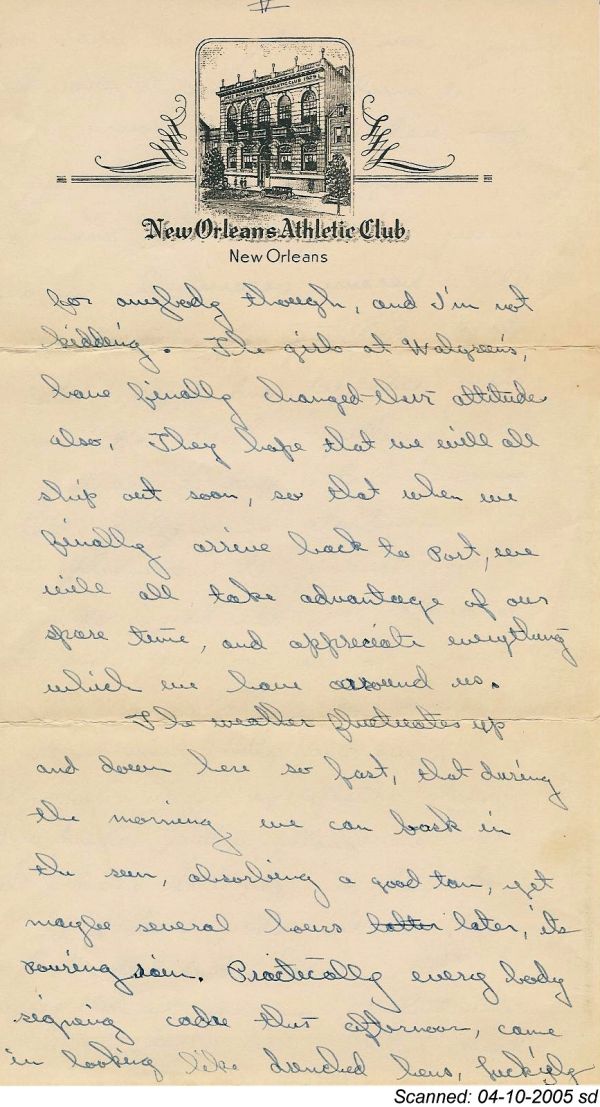 II
New Orleans Athletic Club
New Orleans
for anybody though, and I'm not
kidding. The girls at Walgreen's,
have finally changed their attitude
also. They hope that we will all
ship out soon, so that when we
finally arrive back to Port, we
will all take advantage of our
spare time, and appreciate everything
which we have around us.
The weather fluctuates up
and down here so fast, that during
the morning we can bask in
the sun, absorbing a good tan, yet
maybe several hours latter later, its
pouring rain. Practically every body
signing cadre this afternoon, came
in looking like drenched hens, luckily
Scanned: 04-10-2005 sd